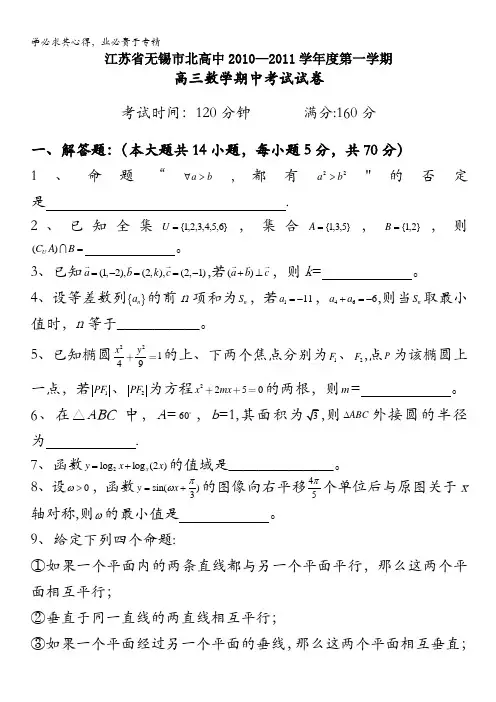 学必求其心得，业必贵于专精
江苏省无锡市北高中2010—2011学年度第一学期
高三数学期中考试试卷
考试时间：120分钟 满分:160分
一、解答题：（本大题共14小题，每小题5分，共70分）
1、命题“ ∀a>b ，都有 a²>b² "的否定
是 .
2、已知全集 U={1,2,3,4,5,6} ，集合 A={1,3,5} ， B={1,2} ，则
(C_U A)∩B= 。
3、已知 a⃗=(1,-2),b⃗=(2,k),c⃗=(2,-1) ,若 (a⃗+b⃗)⊥c⃗ ，则 k= 。
4、设等差数列{aₙ}的前n项和为Sₙ，若a₁=-11，a₄+a₆=-6,则当Sₙ取最小
值时，n等于 。
5、已知椭圆 x²/4+y²/9=1 的上、下两个焦点分别为F₁、F₂,点P为该椭圆上
一点，若|PF₁|、|PF₂|为方程x²+2mx+5=0的两根，则m= 。
6、在△ABC中，A=60°，b=1,其面积为√3,则ΔABC外接圆的半径
为 .
7、函数 y=log₂x+logₓ(2x) 的值域是 。
8、设ω>0，函数 y=sin(ωx+π/3) 的图像向右平移 4π/5 个单位后与原图关于x
轴对称,则ω的最小值是 。
9、给定下列四个命题:
①如果一个平面内的两条直线都与另一个平面平行，那么这两个平
面相互平行；
②垂直于同一直线的两直线相互平行；
③如果一个平面经过另一个平面的垂线，那么这两个平面相互垂直；